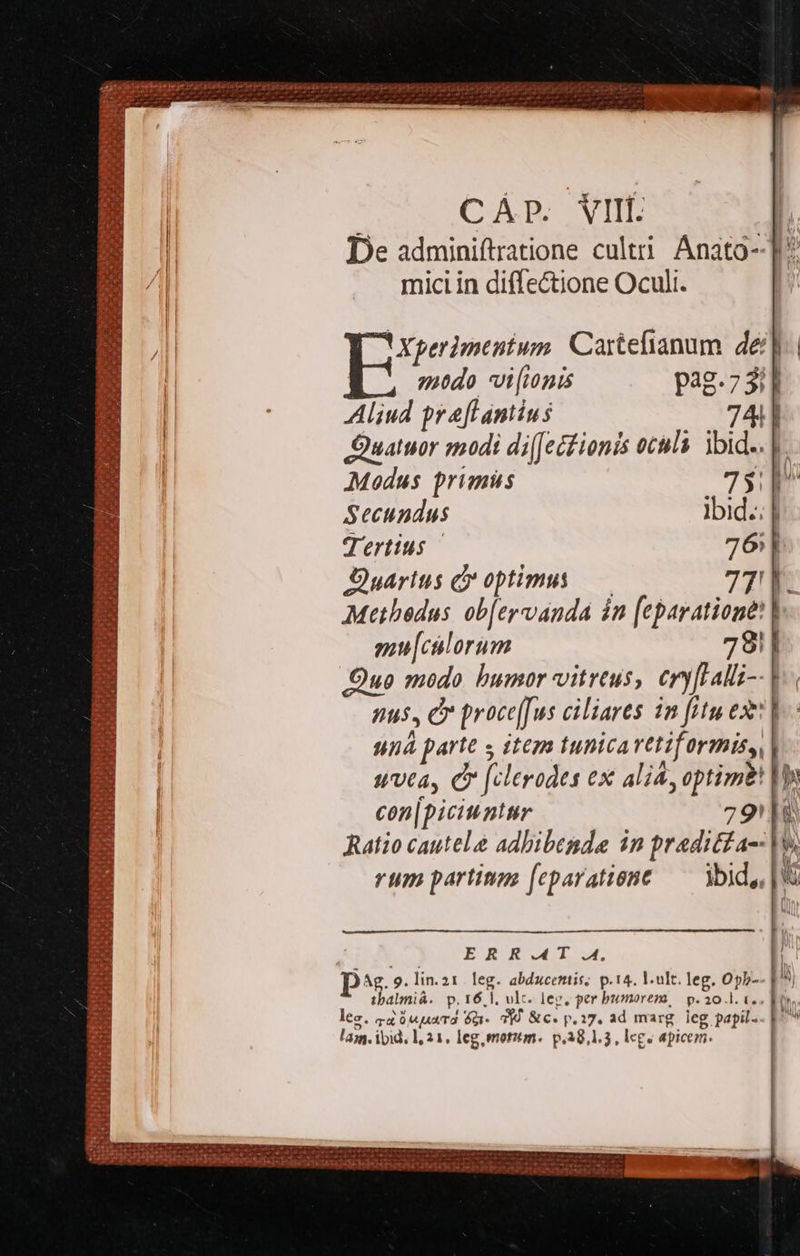 CAP. VIII.
De adminiſtratione cultri Anato-
mici in diſſectione Oculi.
EXperimentum Carteſianum de
modo viſionis pag. 73
Aliud præſtantius 74
Quatuor modi diſſectionis oculi ibid.
Modus primus 75
Secundus ibid.
Tertius 76
Quartus & optimus 77
Methodus obſervanda in ſeparatione
muſculorum 78
Quo modo humor vitreus, cryſtalli-
nus, & proceſſus ciliares in ſitu ex
unâ parte, item tunica retiformis,
uvea, & ſclerodes ex aliâ, optimè
conſpiciuntur 79
Ratio cautelæ adhibendæ in prædicta-
rum partium ſeparatione ibid.
ERRATA.
PAg. 9. lin. 21 leg. abducentis; p. 14. l. ult. leg. Oph-
thalmiâ. p. 16. l. ult. leg. per humorem, p. 20. l.
leg. τὰ ὄμματά &c. p. 27. ad marg leg papil-
lam. ibid. l, 21, leg, motum. p. 28, l. 3, leg. apicem.